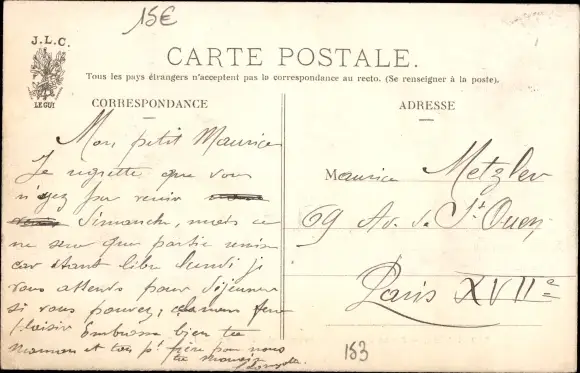 15€
J.L.C.
LE GUI
CARTE POSTALE.
Tous les pays étrangers n'acceptent pas la correspondance au recto. (Se renseigner à la poste).
CORRESPONDANCE
Mon petit Maurice
Je regrette que vous
n'ayez pu venir
dimanche, mais ce
ne sera que partie remise
car étant libre lundi je
vous attends pour déjeuner
si vous pouvez,
plaisir Embrasse bien ta
maman et ton pt frère pour nous
ADRESSE
Maurice Metzler
69 Av. de St Ouen
Paris XVIIe
153